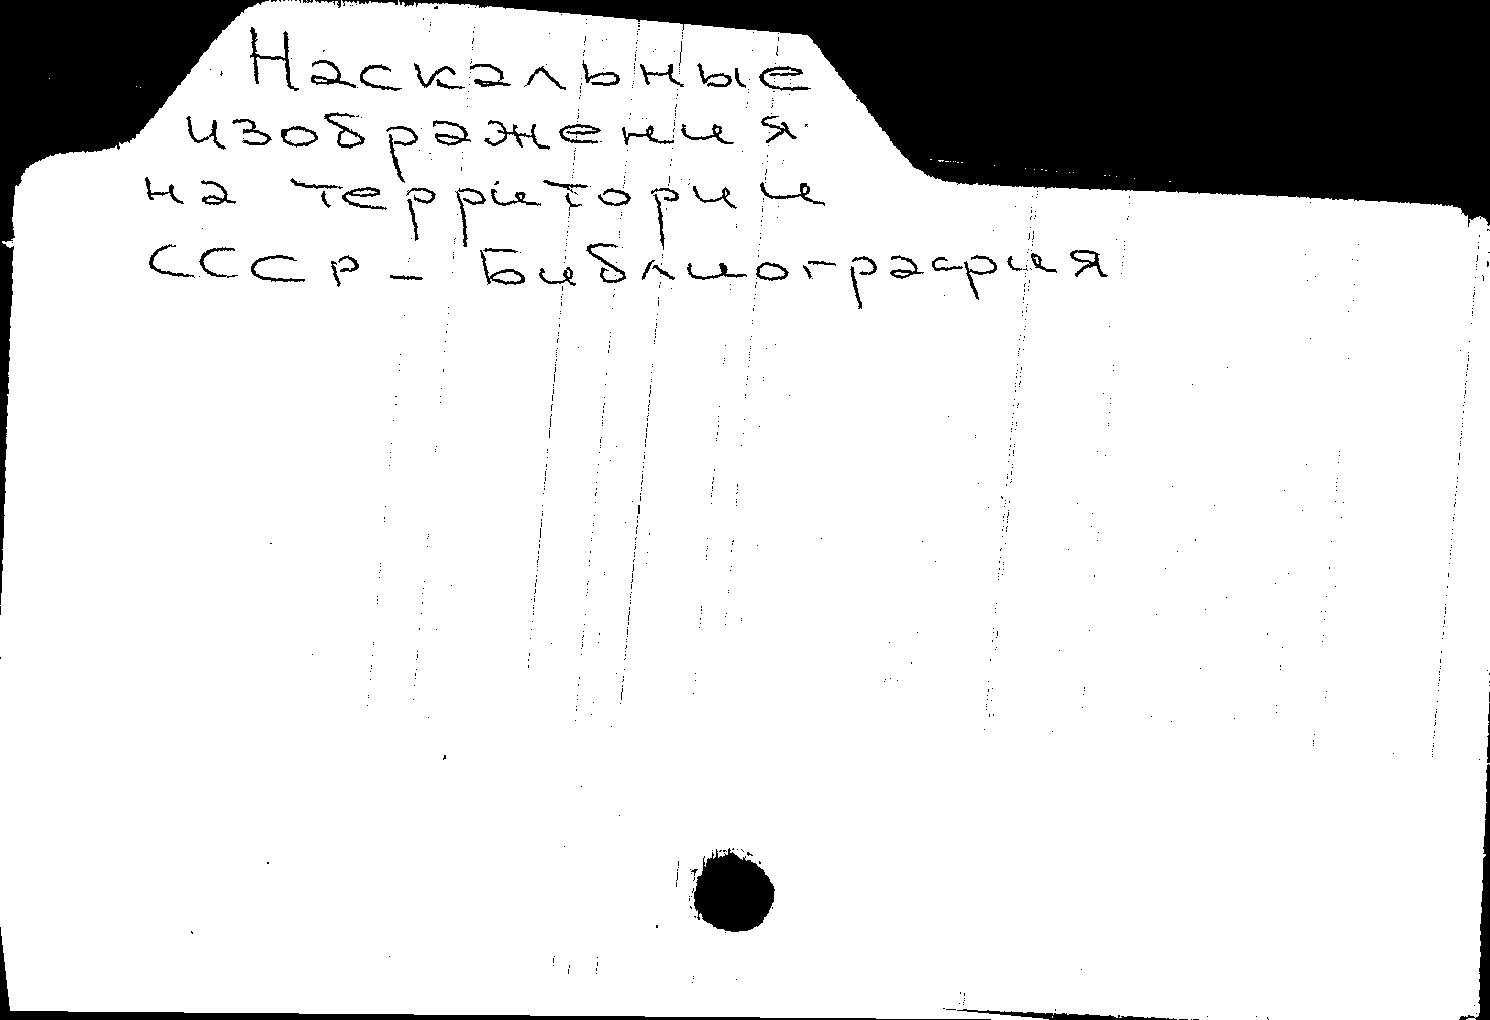 Наскальные
изображения
на территории
СССР – Библиография